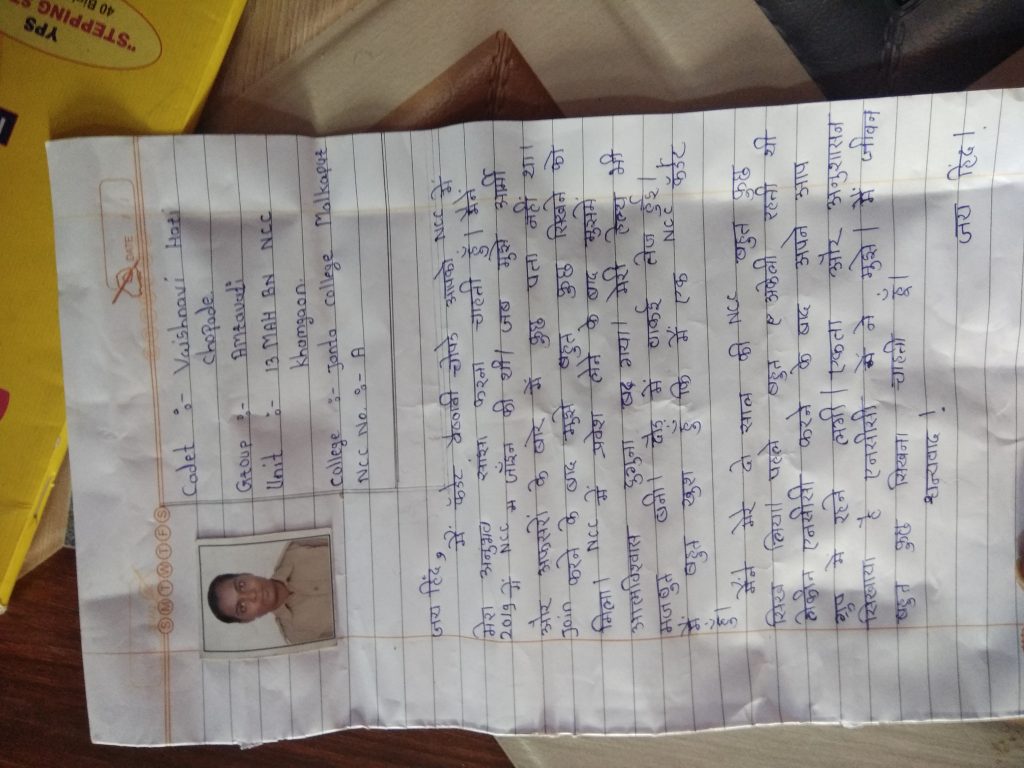 YPS
"STEPPING ST
40 Bi
DATE
S M T W T F S
Cadet :- Vaishnavi Hari
chopade
Group :- Amravati
Unit :- 13 MAH BN NCC
Khamgaon.
College :- Janta College Malkapur
NCC No. :- A
जय हिंद,
मैं कॅडेट वैष्णवी चोपडे आपको NCC में
मेरा अनुभव सांझा करना चाहती हूँ। मैंने
2019 में NCC में जॉईन की थी। जब मुझे आर्मी
और अफसरों के बारे में कुछ पता नहीं था।
Join करने के बाद मुझे बहुत कुछ सिखने को
मिला। NCC में प्रवेश लेने के बाद मुझमें
आत्मविश्वास इतना बढ़ गया। मेरी हेल्थ भी
मजबुत बनी।
मैं बहुत खुश हूँ कि मैं एक NCC कॅडेट
हूँ।
मैंने मेरे दो साल की NCC बहुत कुछ
सिख लिया। पहले बहुत अकेली रहती थी
लेकीन एनसीसी करने के बाद अपने आप
ग्रुप में रहने लगी। एकता और अनुशासन
सिखाया है एनसीसी ने मुझे। मैं जीवन
बहुत कुछ सिखना चाहती हूँ।
धन्यवाद!
जय हिंद।